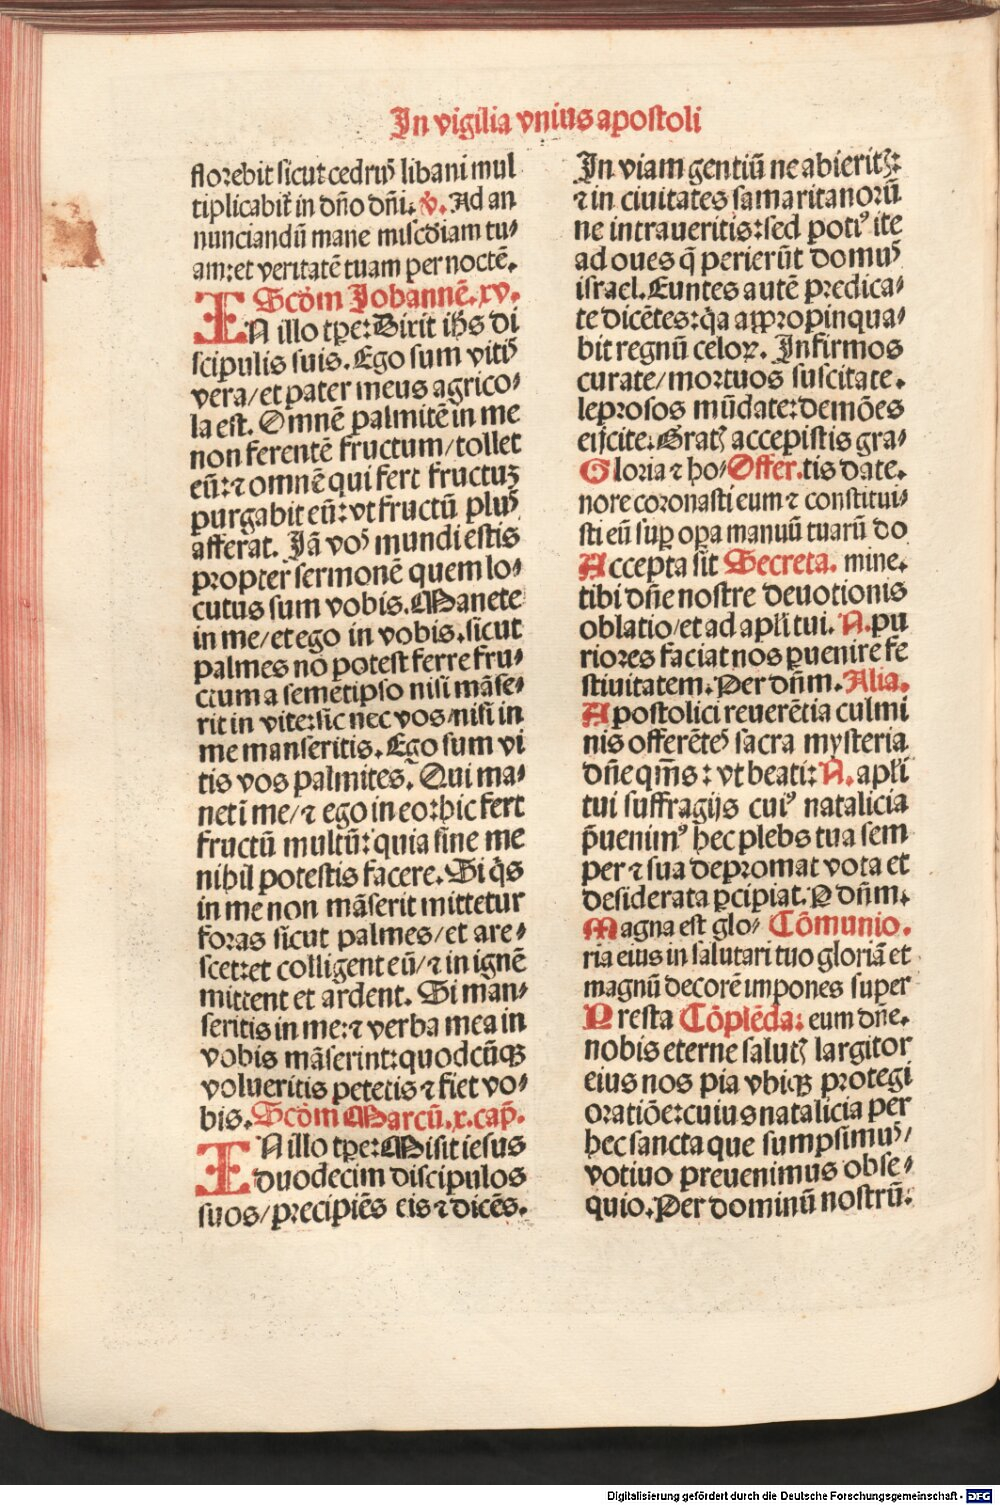 In vigilia vnius apostoli
florebit sicut cedrꝰ libani mul
tiplicabit̃ in dño dñi. v̾. Ad an
nunciandū mane miscd̾iam tu⸗
am: et veritatē tuam per noctē.
Scd̾m Johannē. xv.
IN illo tꝑe: Dixit ihs̄ di
scipulis suis. Ego sum vitꝭ
vera/ et pater meus agrico⸗
la est. Omnē palmitē in me
non ferentē fructum/ tollet
eū: ⁊ omnē qui fert fructuꝫ
purgabit eū: vt fructū plꝰ
afferat. Jā voꝭ mundi estis
propter sermonē quem lo⸗
cutus sum vobis. Manete
in me/ et ego in vobis. sicut
palmes nō potest ferre fru⸗
ctum a semetipso nisi māse⸗
rit in vite: sic nec vos/ nisi in
me manseritis. Ego sum vi
tis vos palmites. Qui ma⸗
net ī me/ ⁊ ego in eo: hic fert
fructū multū: quia sine me
nihil potestis facere. Si q̄s
in me non māserit mittetur
foras sicut palmes/ et are⸗
scet: et colligent eū/ ⁊ in ignē
mittent et ardent. Si man⸗
seritis in me: ⁊ verba mea in
vobis māserint: quodcūqꝫ
volueritis petetis ⁊ fiet vo⸗
bis. Scd̾m Marcū. x. cap̄.
IN illo tꝑe: Misit iesus
duodecim discipulos
suos/ precipiēs eis ⁊ dicēs.
In viam gentiū ne abieritꝭ:
⁊ in ciuitates samaritanorū
ne intraueritis: sed potiꝰ ite
ad oues q̄ perierūt domuꝭ
israel. Euntes autē predica⸗
te dicētes: q̄a appropinqua⸗
bit regnū celoꝝ. Infirmos
curate/ mortuos suscitate.
leprosos mūdate: demōes
eijcite. Gratꝭ accepistis gra⸗
Gloria ⁊ ho⸗ Offer. tis date.
nore coronasti eum ⁊ constitui⸗
sti eū suꝑ oꝑa manuū tuarū do
Accepta sīt Secreta. mine.
tibi dñe nostre deuotionis
oblatio/ et ad apl̄i tui. N. pu
riores faciat nos ꝑuenire fe
stiuitatem. Per dn̄m. Alia.
Apostolici reuerētia culmi
nis offerēteꝭ sacra mysteria
dñe qm̄s: vt beati: N. apl̄i
tui suffragijs cuiꝰ natalicia
p̄uenimꝰ hec plebs tua sem
per ⁊ sua depromat vota et
desiderata ꝑcipiat. P dn̄m.
Magna est glo⸗ Cōmunio.
ria eius in salutari tuo gloriā et
magnū decorē impones super
Presta Cōplēda: eum dñe.
nobis eterne salutꝭ largitor
eius nos pia vbiqꝫ protegi
oratiōe: cuius natalicia per
hec sancta que sumpsimuꝭ/
votiuo preuenimus obse⸗
quio. Per dominū nostrū.
Digitalisierung gefördert durch die Deutsche Forschungsgemeinschaft - DFG